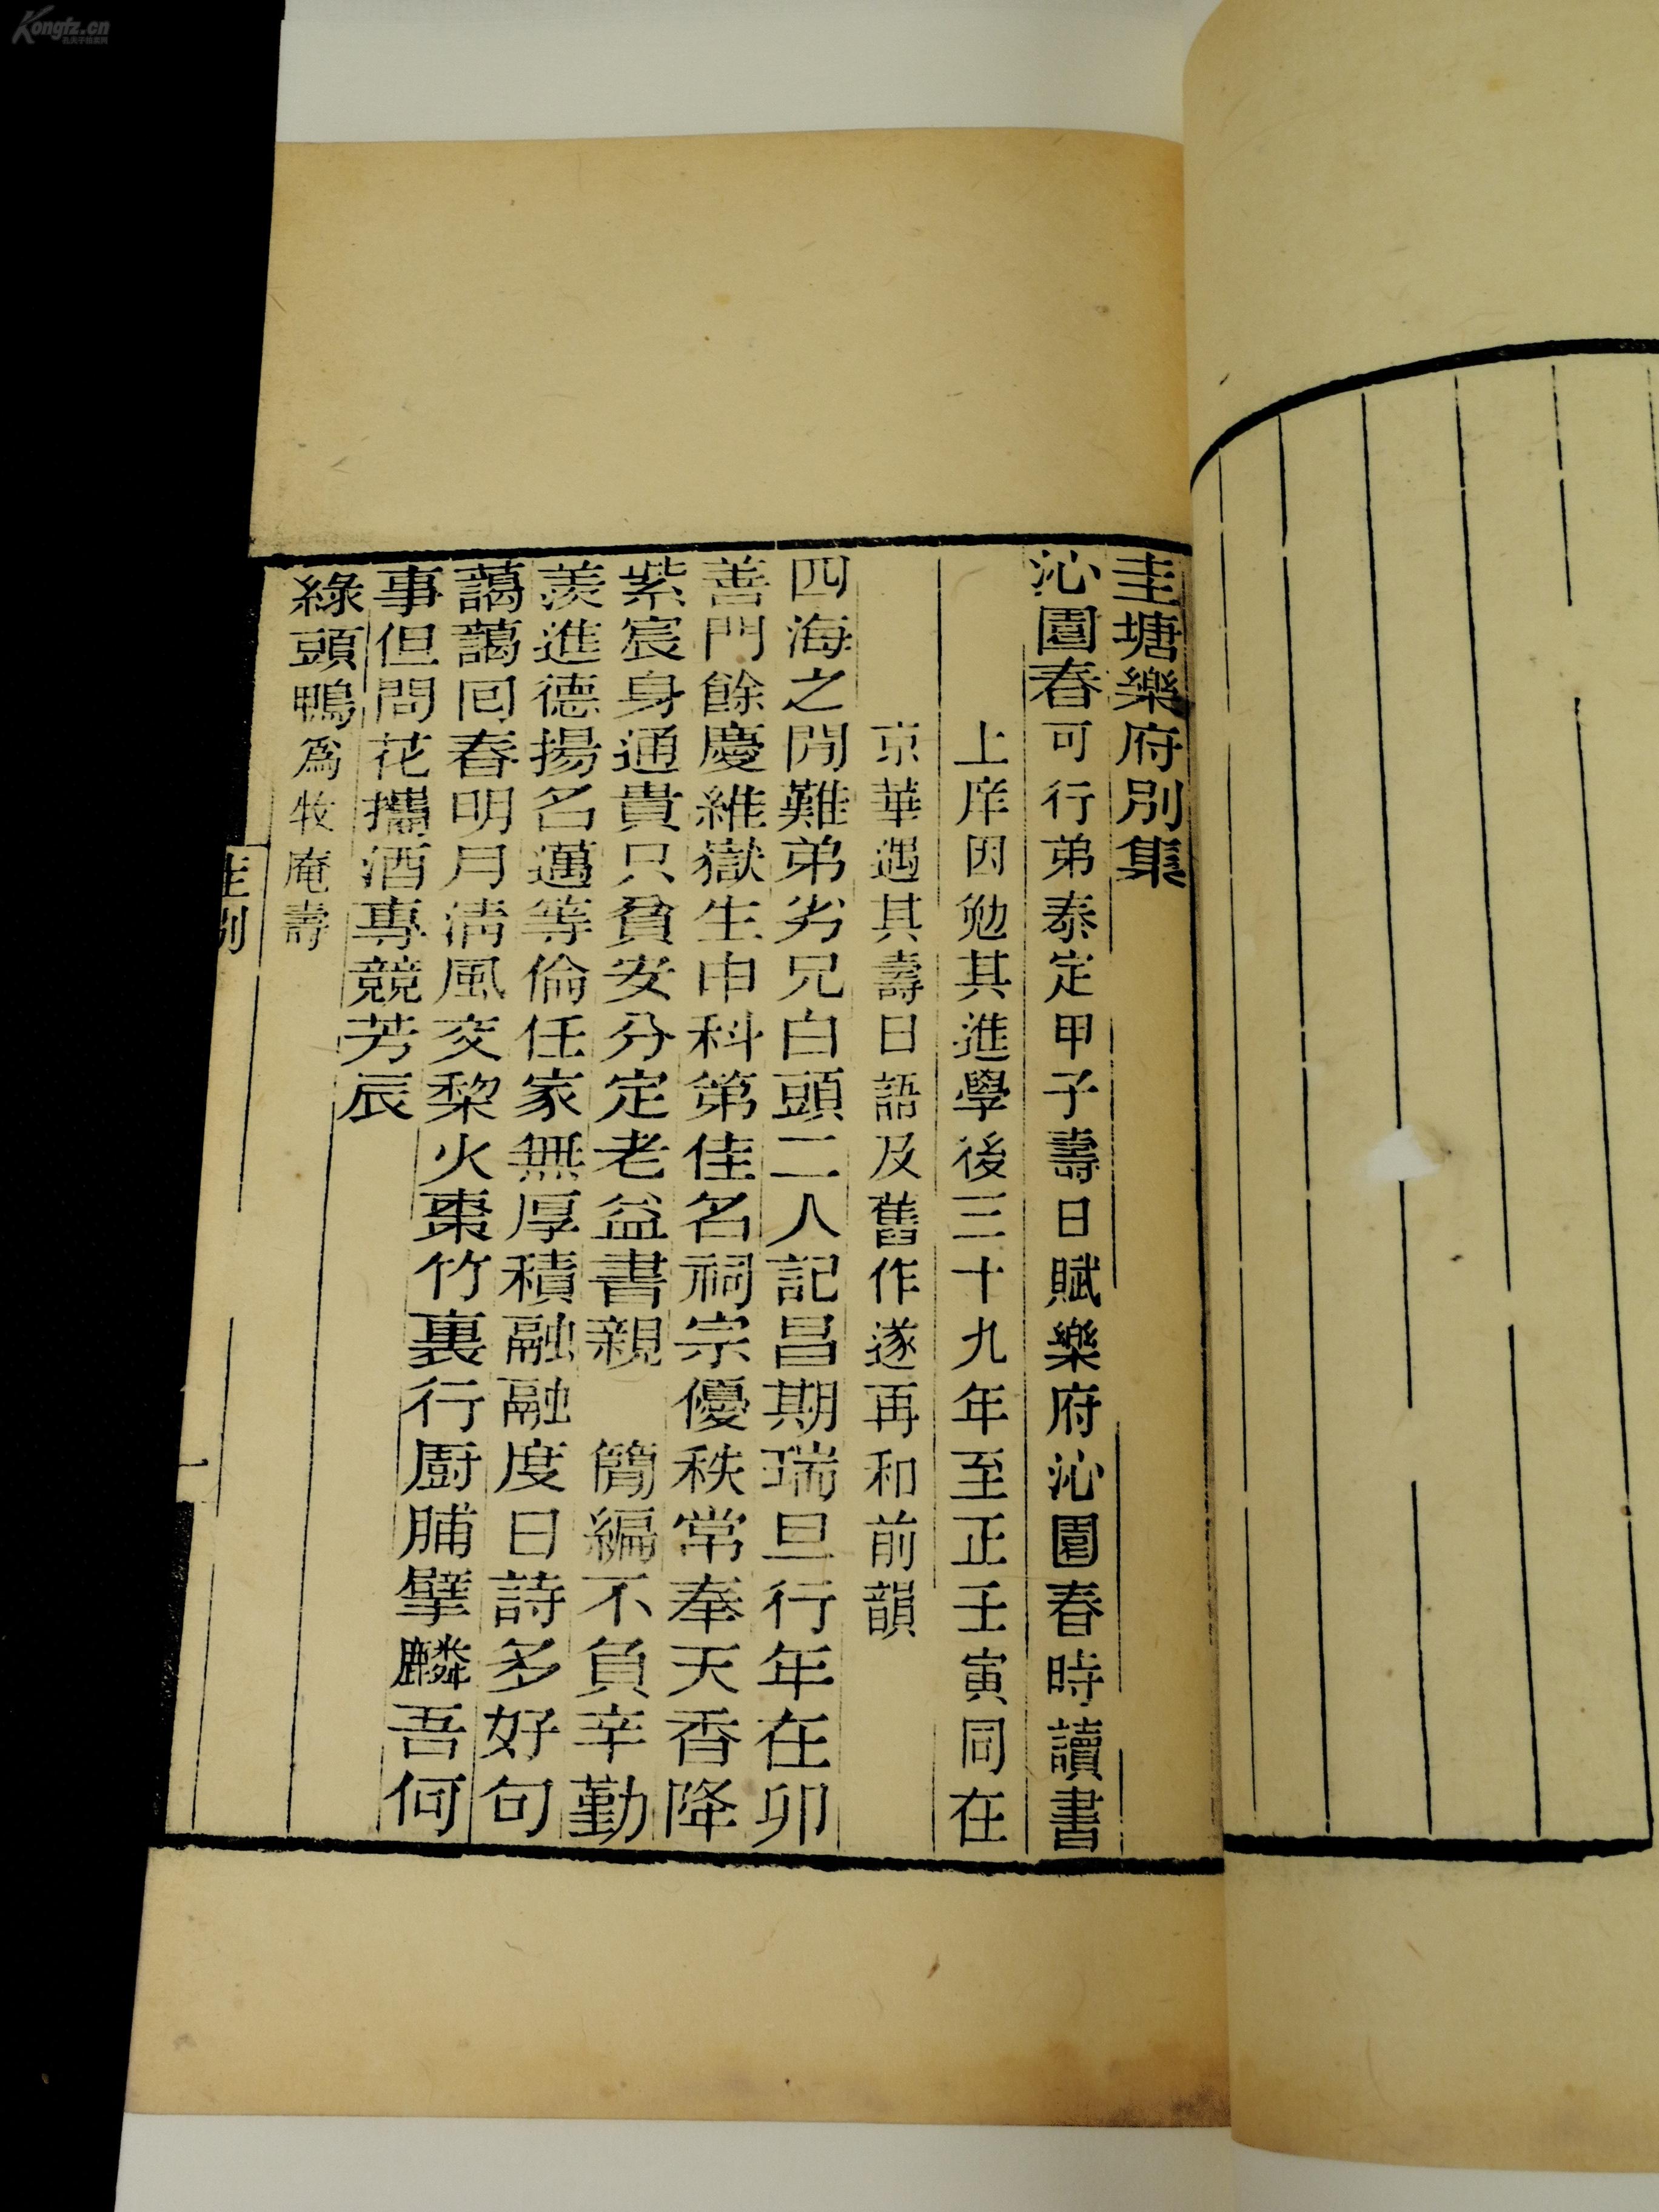 圭塘樂府別集
沁園春可行弟泰定甲子壽日賦樂府沁園春時讀書
上庠因勉其進學後三十九年至正壬寅同在
京華遇其壽日語及舊作遂再和前韻
四海之閒難弟劣兄白頭二人記昌期瑞旦行年在卯
善門餘慶維嶽生申科第佳名祠宗優秩常奉天香降
紫宸身通貴只貧安分定老益書親　簡編不負辛勤
羨進德揚名邁等倫任家無厚積融融度日詩多好句
藹藹回春明月清風交棃火棗竹裏行厨脯擘麟吾何
事但問花攜酒專競芳辰
綠頭鴨爲牧庵壽
圭別
一
Kongfz.cn
孔夫子旧书网